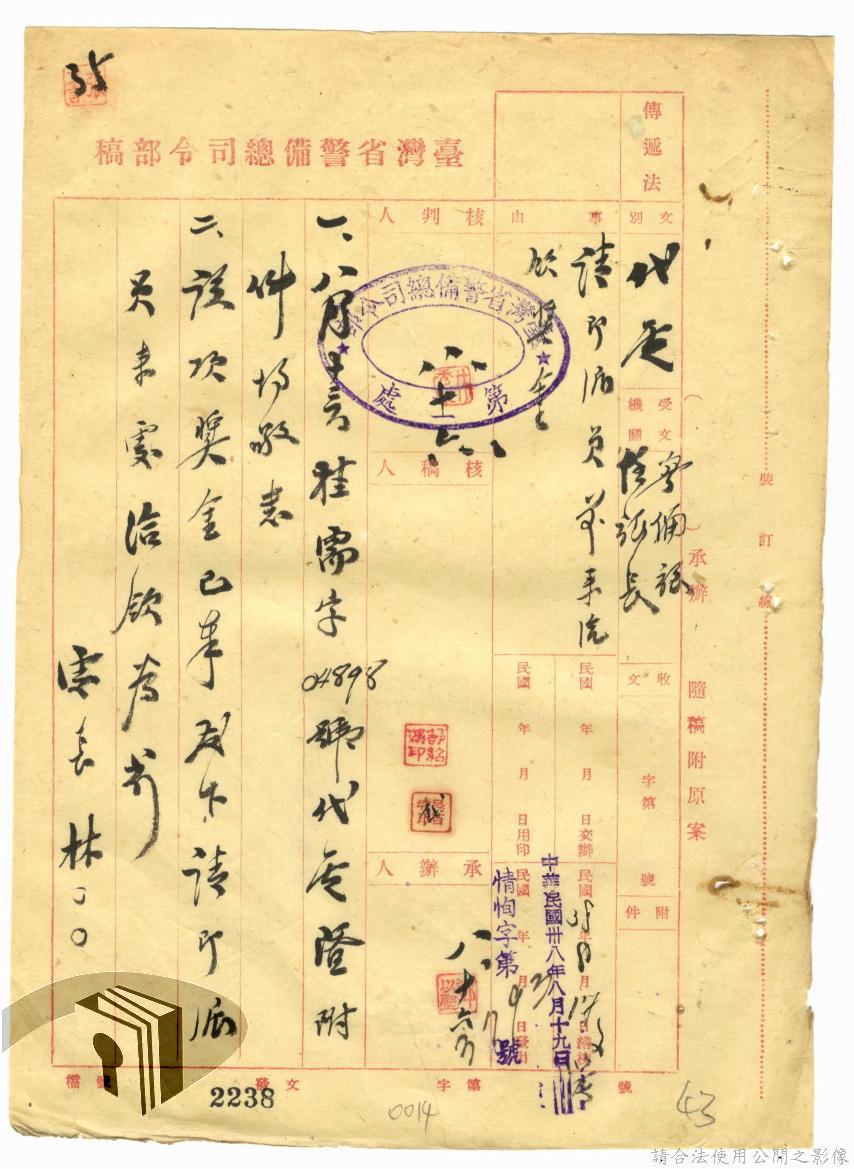 臺灣省警備總司令部稿
傳遞法
文別
代電
受文機關
任訊長
事由
請即派員前來流
領獎金
核判人
臺灣省警備總司令部
第二處
八十六
核稿人
承辦人
八、十六
收文
字第
號
附件
民國 年 月 日交辦
民國 年 月 日用印
民國 年 月 日繕校
民國 年 月 日發出
中華民國卅八年八月十九日
情恂字第
號
一、八月十 桂需字04898號代電暨附
件均敬悉
二、該項獎金已奉發下請即派
員來處洽領為荷
處長林〇〇
(承辦)
隨稿附原案
裝訂線
檔號
發文
字第
號
2238
0014
43
請合法使用公開之影像